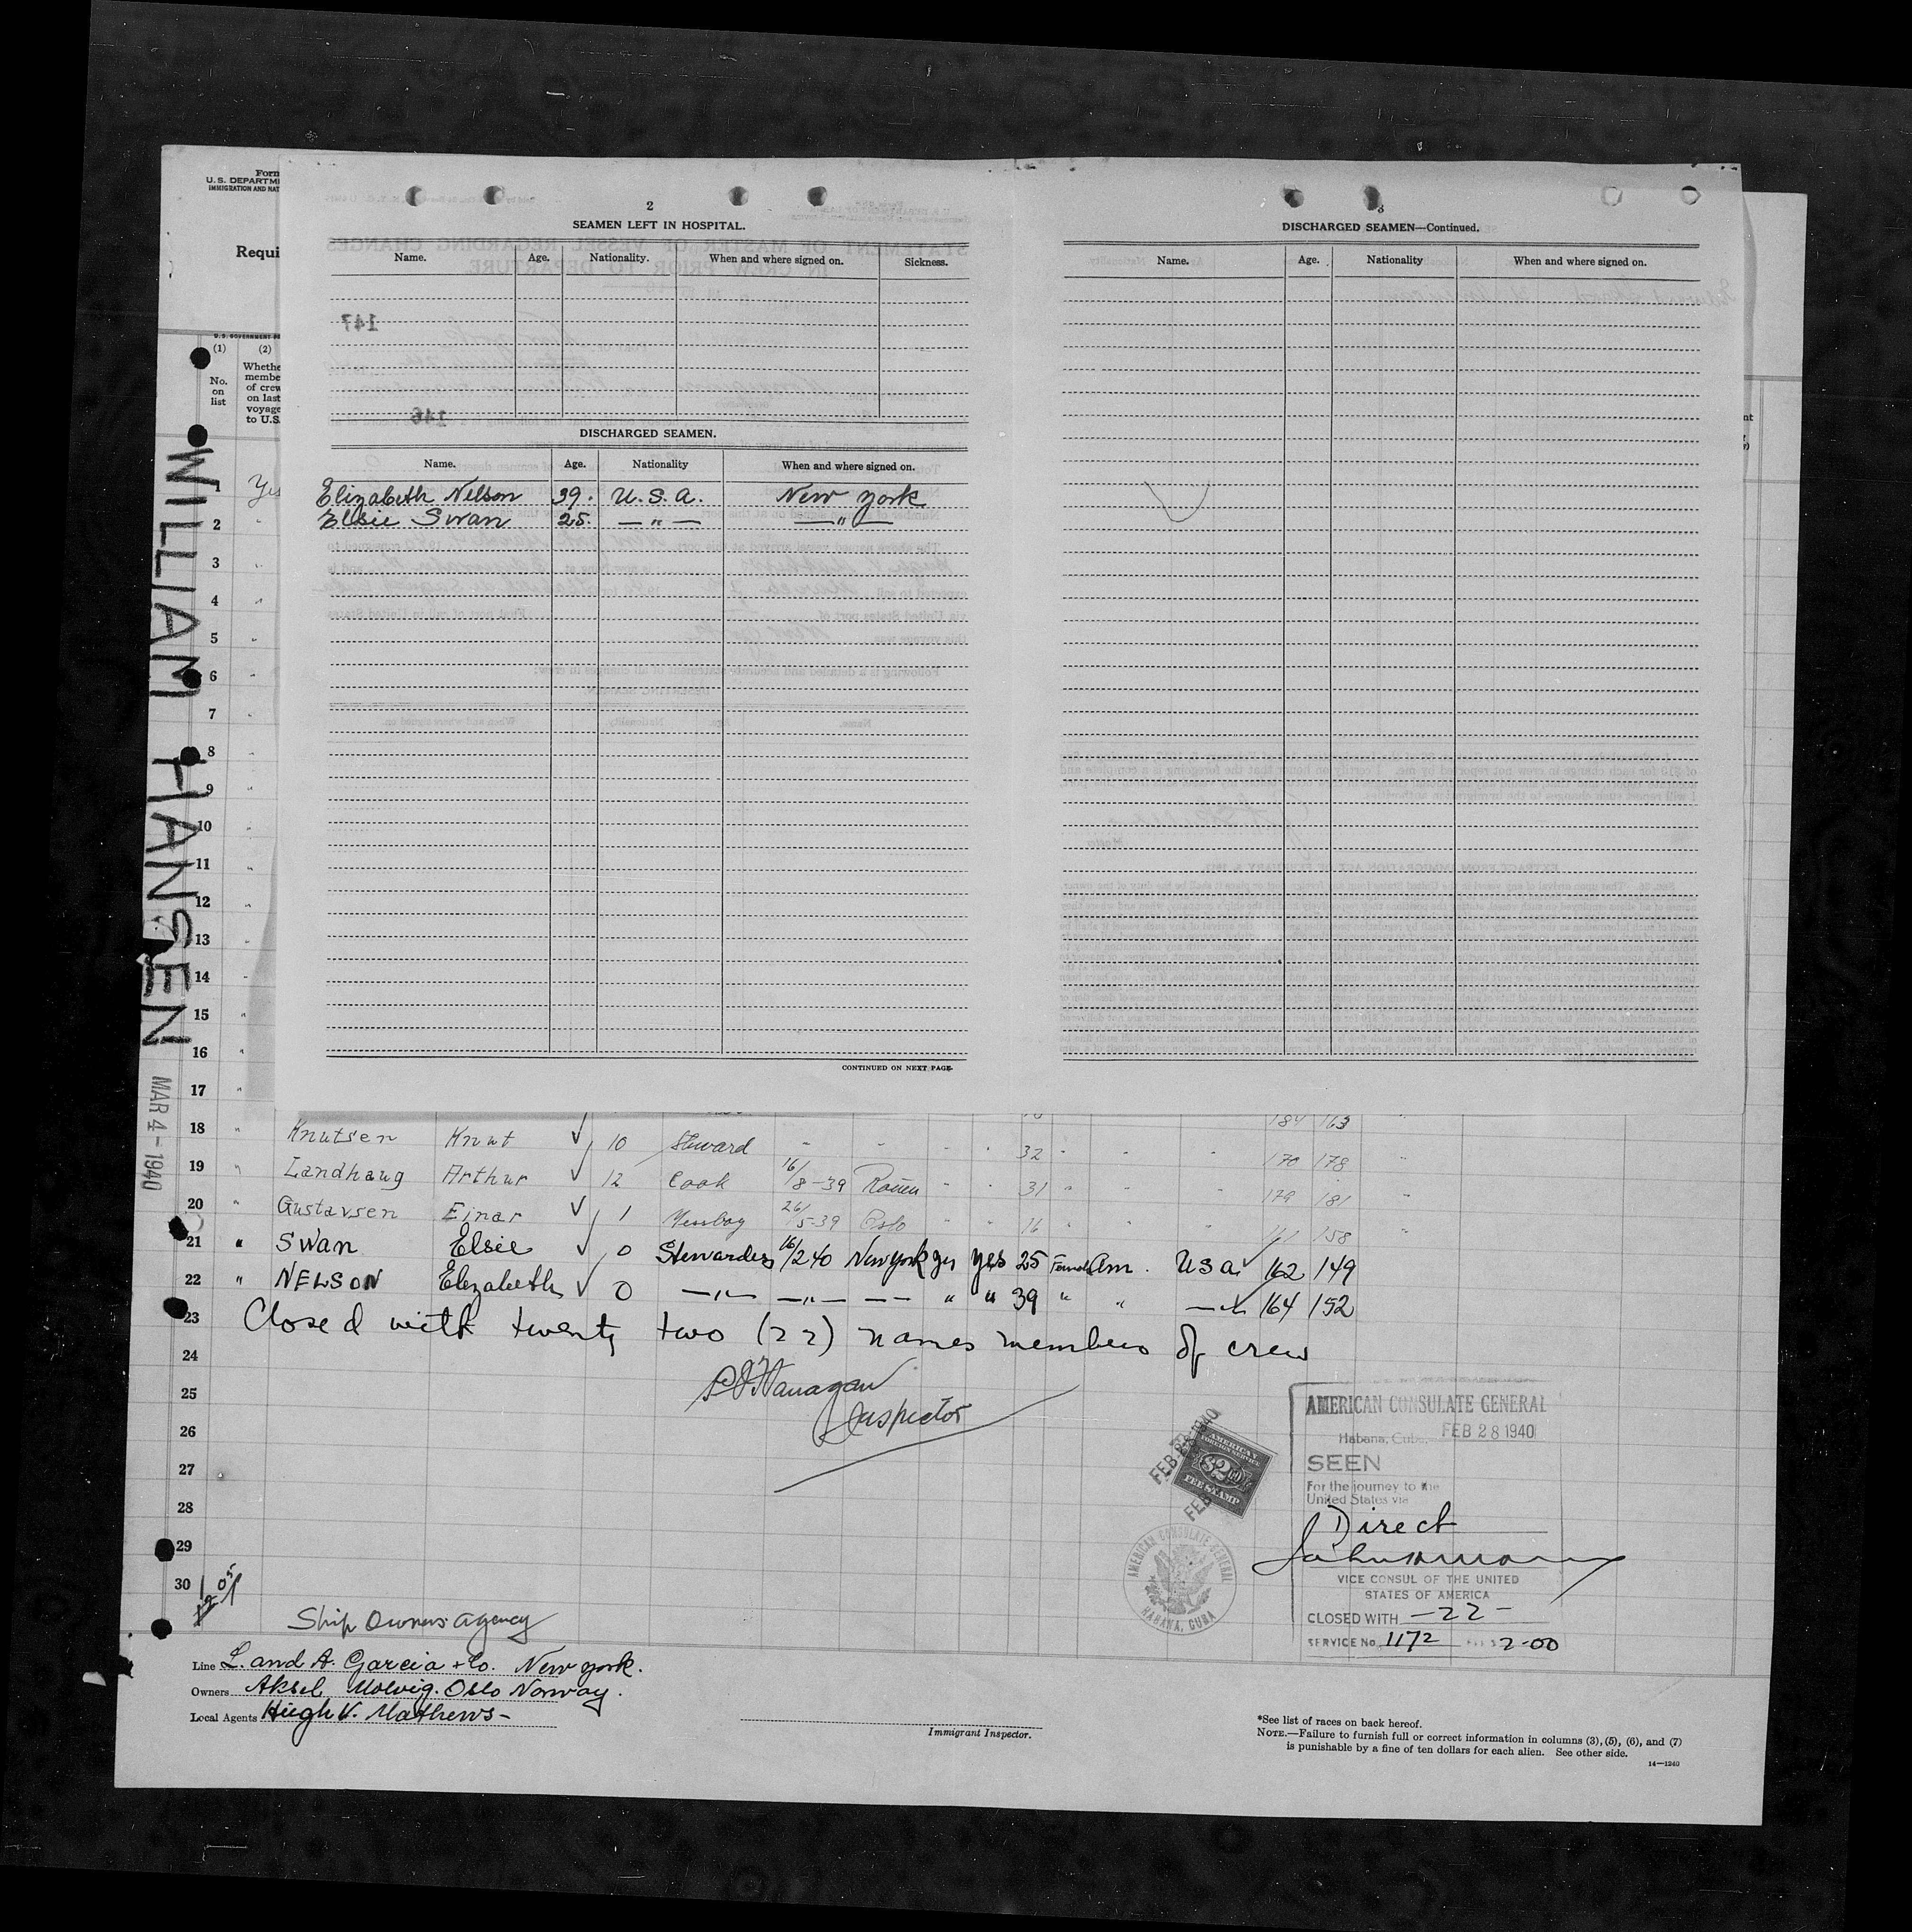 Form
U. S. DEPARTME
IMMIGRATION AND NAT
Requi
U. S. GOVERNMENT
(1) (2)
No. on list
Whethe
membe
of crew
on last
voyage
to U.S.
WILLIAM HANSEN
MAR 4 - 1940
2
SEAMEN LEFT IN HOSPITAL.
Name. Age. Nationality. When and where signed on. Sickness.
147
146
DISCHARGED SEAMEN.
Name. Age. Nationality When and where signed on.
Elizabeth Nelson 39. U.S.A. New York
Elsie Swan 25. —"— —"—
CONTINUED ON NEXT PAGE
3
DISCHARGED SEAMEN—Continued.
Name. Age. Nationality When and where signed on.
1 Yes
2 "
3 "
4 "
5 "
6 "
7 "
8 "
9 "
10 "
11 "
12 "
13 "
14 "
15 "
16 "
17 "
184 163
18 " Knutsen Knut √ 10 Steward " " " " 32 " " " 170 178 "
19 " Landhaug Arthur √ 12 Cook 16/8-39 Rouen " " 31 " " " 179 181 "
20 " Gustavsen Einar √ 1 Messboy 26/5-39 Oslo " " 16 " " " 158 "
21 " Swan Elsie √ 0 Stewardess 16/2 40 New York yes yes 25 Female Am. USA √ 162 149
22 " NELSON Elizabeth √ 0 —"— —"— —— " " 39 " " —"— 164 152
23 Closed with twenty two (22) names members of crew
24
25
Inspector
26
27
28
29
30
AMERICAN CONSULATE GENERAL
Habana, Cuba, FEB 28 1940
SEEN
For the journey to the
United States via
Direct
VICE CONSUL OF THE UNITED
STATES OF AMERICA
CLOSED WITH —22—
SERVICE No. 1172 2.00
FEB 28 1940
FEB
AMERICAN
FOREIGN SERVICE
$2.00
FEE STAMP
AMERICAN CONSULATE GENERAL
HABANA, CUBA
Ship Owners Agency
Line L. and A. Garcia + Co. New York.
Owners Aksel Molvig. Oslo Norway.
Local Agents Hugh V. Mathews—
Immigrant Inspector.
*See list of races on back hereof.
NOTE.—Failure to furnish full or correct information in columns (3), (5), (6), and (7)
is punishable by a fine of ten dollars for each alien. See other side.
14—1240